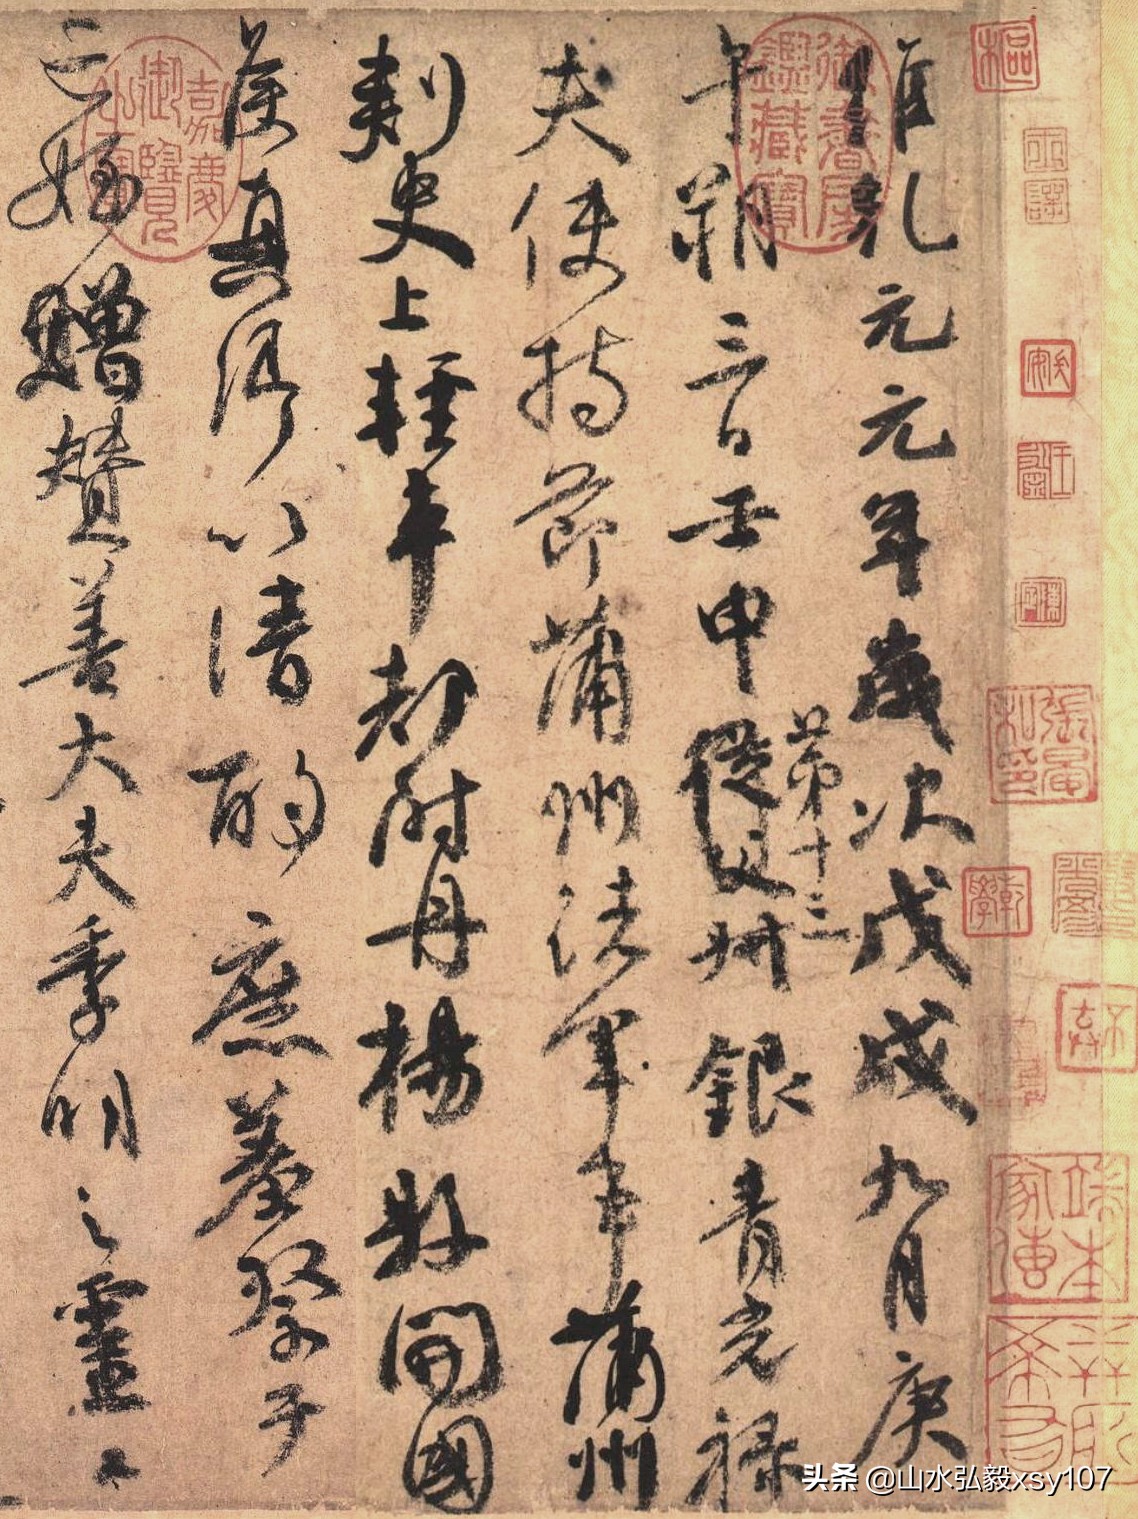 維乾元元年歲次戊戌九月庚
午朔三日壬申第十三從父叔銀青光祿
夫使持節蒲州諸軍事蒲州
刺史上輕車都尉丹楊縣開國
侯真卿以清酌庶羞祭于
亡姪贈贊善大夫季明之靈曰
御書房鑑藏寶
嘉慶御覽
樞
頭条 @山水弘毅xsy107